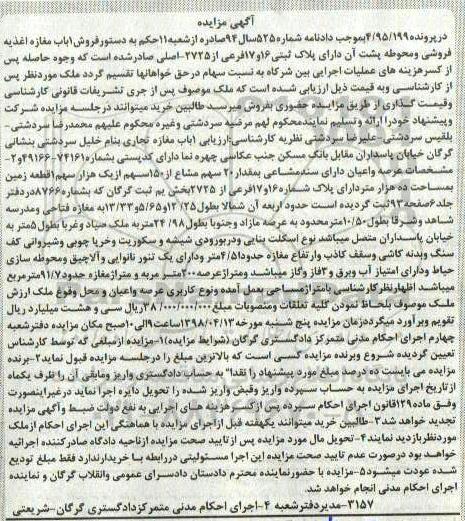 آگهی مزایده
درپرونده ۴/۹۵/۱۹۹بموجب دادنامه شماره۵۲۵سال۹۴صادره ازشعبه۱۱حکم به دستورفروش۱باب مغازه اغذیه
فروشی ومحوطه پشت آن دارای پلاک ثبتی۱۶و۱۷فرعی از۲۷۲۵-اصلی صادرشده است که وجوه حاصله پس
از کسرهزینه های عملیات اجرایی بین شرکاء به نسبت سهام درحق خواهانها تقسیم گردد ملک موردنظر پس
از کارشناسی وبه قیمت ذیل ارزیابی شده است که ملک موصوف پس از جری تشریفات قانونی کارشناسی
وقیمت گذاری از طریق مزایده حضوری بفروش میرسد طالبین خرید میتوانند درجلسه مزایده شرکت
وپیشنهاد خودرا ارائه وتسلیم نمایندمحکوم لهم مرضیه سردشتی وغیره محکوم علیهم محمدرضا سردشتی-
بلقیس سردشتی-علیرضا سردشتی نظریه کارشناسی:ارزیابی ۱باب مغازه تجاری بنام خلیل سردشتی بنشانی
گرگان خیابان پاسداران مقابل بانک مسکن جنب عکاسی چهره نما دارای کدپستی بشماره۷۴۱۶۱-۴۹۱۶۶و۲-
مشخصات عرصه واعیان دارای سندمشاعی بمقدار۲۰ سهم مشاع از۱۵۰سهم ازیک هزار سهم۱قطعه زمین
بمساحت ده هزار متردارای پلاک شماره۱۶و۱۷فرعی از ۲۷۲۵بخش یم ثبت گرگان که بشماره۸۷۶۶دردفتر
جلد۶صفحه۹۳ثبت گردیده است حدود اربعه آن شمالا بطول۱۲/۲۵و۵/۶۵و۱۳/۳۳به مغازه فتاحی ومدرسه
شاهد وشرقا بطول۱۰/۵۰مترمحدود به عرصه مازاد وجنوبا بطول۲۴/۹۸ متربه ملک صیاد وغربا بطول۵متر به
خیابان پاسداران متصل میباشد نوع اسکلت بنایی ودربورودی شیشه و سکوریت وخرپا چوبی وشیروانی کف
سنگ وبدنه کاشی وسقف کاذب وارتفاع مغازه حدودا۴/۵متر ودارای یک تنور نانوایی وآلاچیق ومحوطه سازی
حیاط ودارای امتیاز آب وبرق و۳فاز وگاز میباشد ومتراژعرصه۲۰۰متر مربع و متراژمغازه حدود۹۱/۷مترمربع
میباشد اظهارنظرکارشناسی بامترازمساحی بعمل آمده ونوع کاربری عرصه واعیان و محل وقوع ملک ارزش
ملک موصوف بلحاظ نمودن کلیه تعلقات ومنصوبات مبلغ۳۸/۰۰۰/۰۰۰/۰۰۰ریال سی و هشت میلیارد ریال
تقویم وبرآورد میگرددزمان مزایده پنج شنبه مورخه۱۳۹۸/۰۴/۱۳ساعت۹الی۱۰صبح مکان مزایده دفترشعبه
چهارم اجرای احکام مدنی متمرکز دادگستری گرگان (شرایط مزایده)۱-مزایده ازمبلغی که توسط کارشناس
تعیین گردیده شروع وبرنده مزایده کسی است که بالاترین مبلغ را درجلسه مزایده قبول نماید۲-برنده
مزایده می بایست ده درصد مبلغ مورد پیشنهاد را نقدا" به حساب دادگستری واریز ومابقی آن را ظرف یکماه
ازتاریخ اجرای مزایده به حساب سپرده واریز وقبض واریز شده را تحویل دایره اجرا نماید درغیراینصورت
وفق ماده۱۲۹قانون اجرای احکام سپرده پس ازکسرهزینه های اجرایی به نفع دولت ضبط وآگهی مزایده
تجدید خواهد شد۳-طالبین خرید میتوانند یکهفته قبل ازاجرای مزایده با هماهنگی این اجرای احکام ازملک
موردنظربازدید نمایند۴-تحویل مال مورد مزایده پس ازتایید صحت مزایده ازناحیه دادگاه صادرکننده اجرائیه
خواهد بود درصورت عدم تایید صحت مزایده این اجرا مسئولیتی دررابطه با خریدارندارد فقط مبلغ تودیع
شده عودت میشود۵-مزایده با حضورنماینده محترم دادستان دادسرای عمومی وانقلاب گرگان و نماینده
اجرای احکام مدنی انجام خواهد شد.
۳۱۵۷-مدیردفترشعبه ۴-اجرای احکام مدنی متمرکزدادگستری گرگان-شریعتی